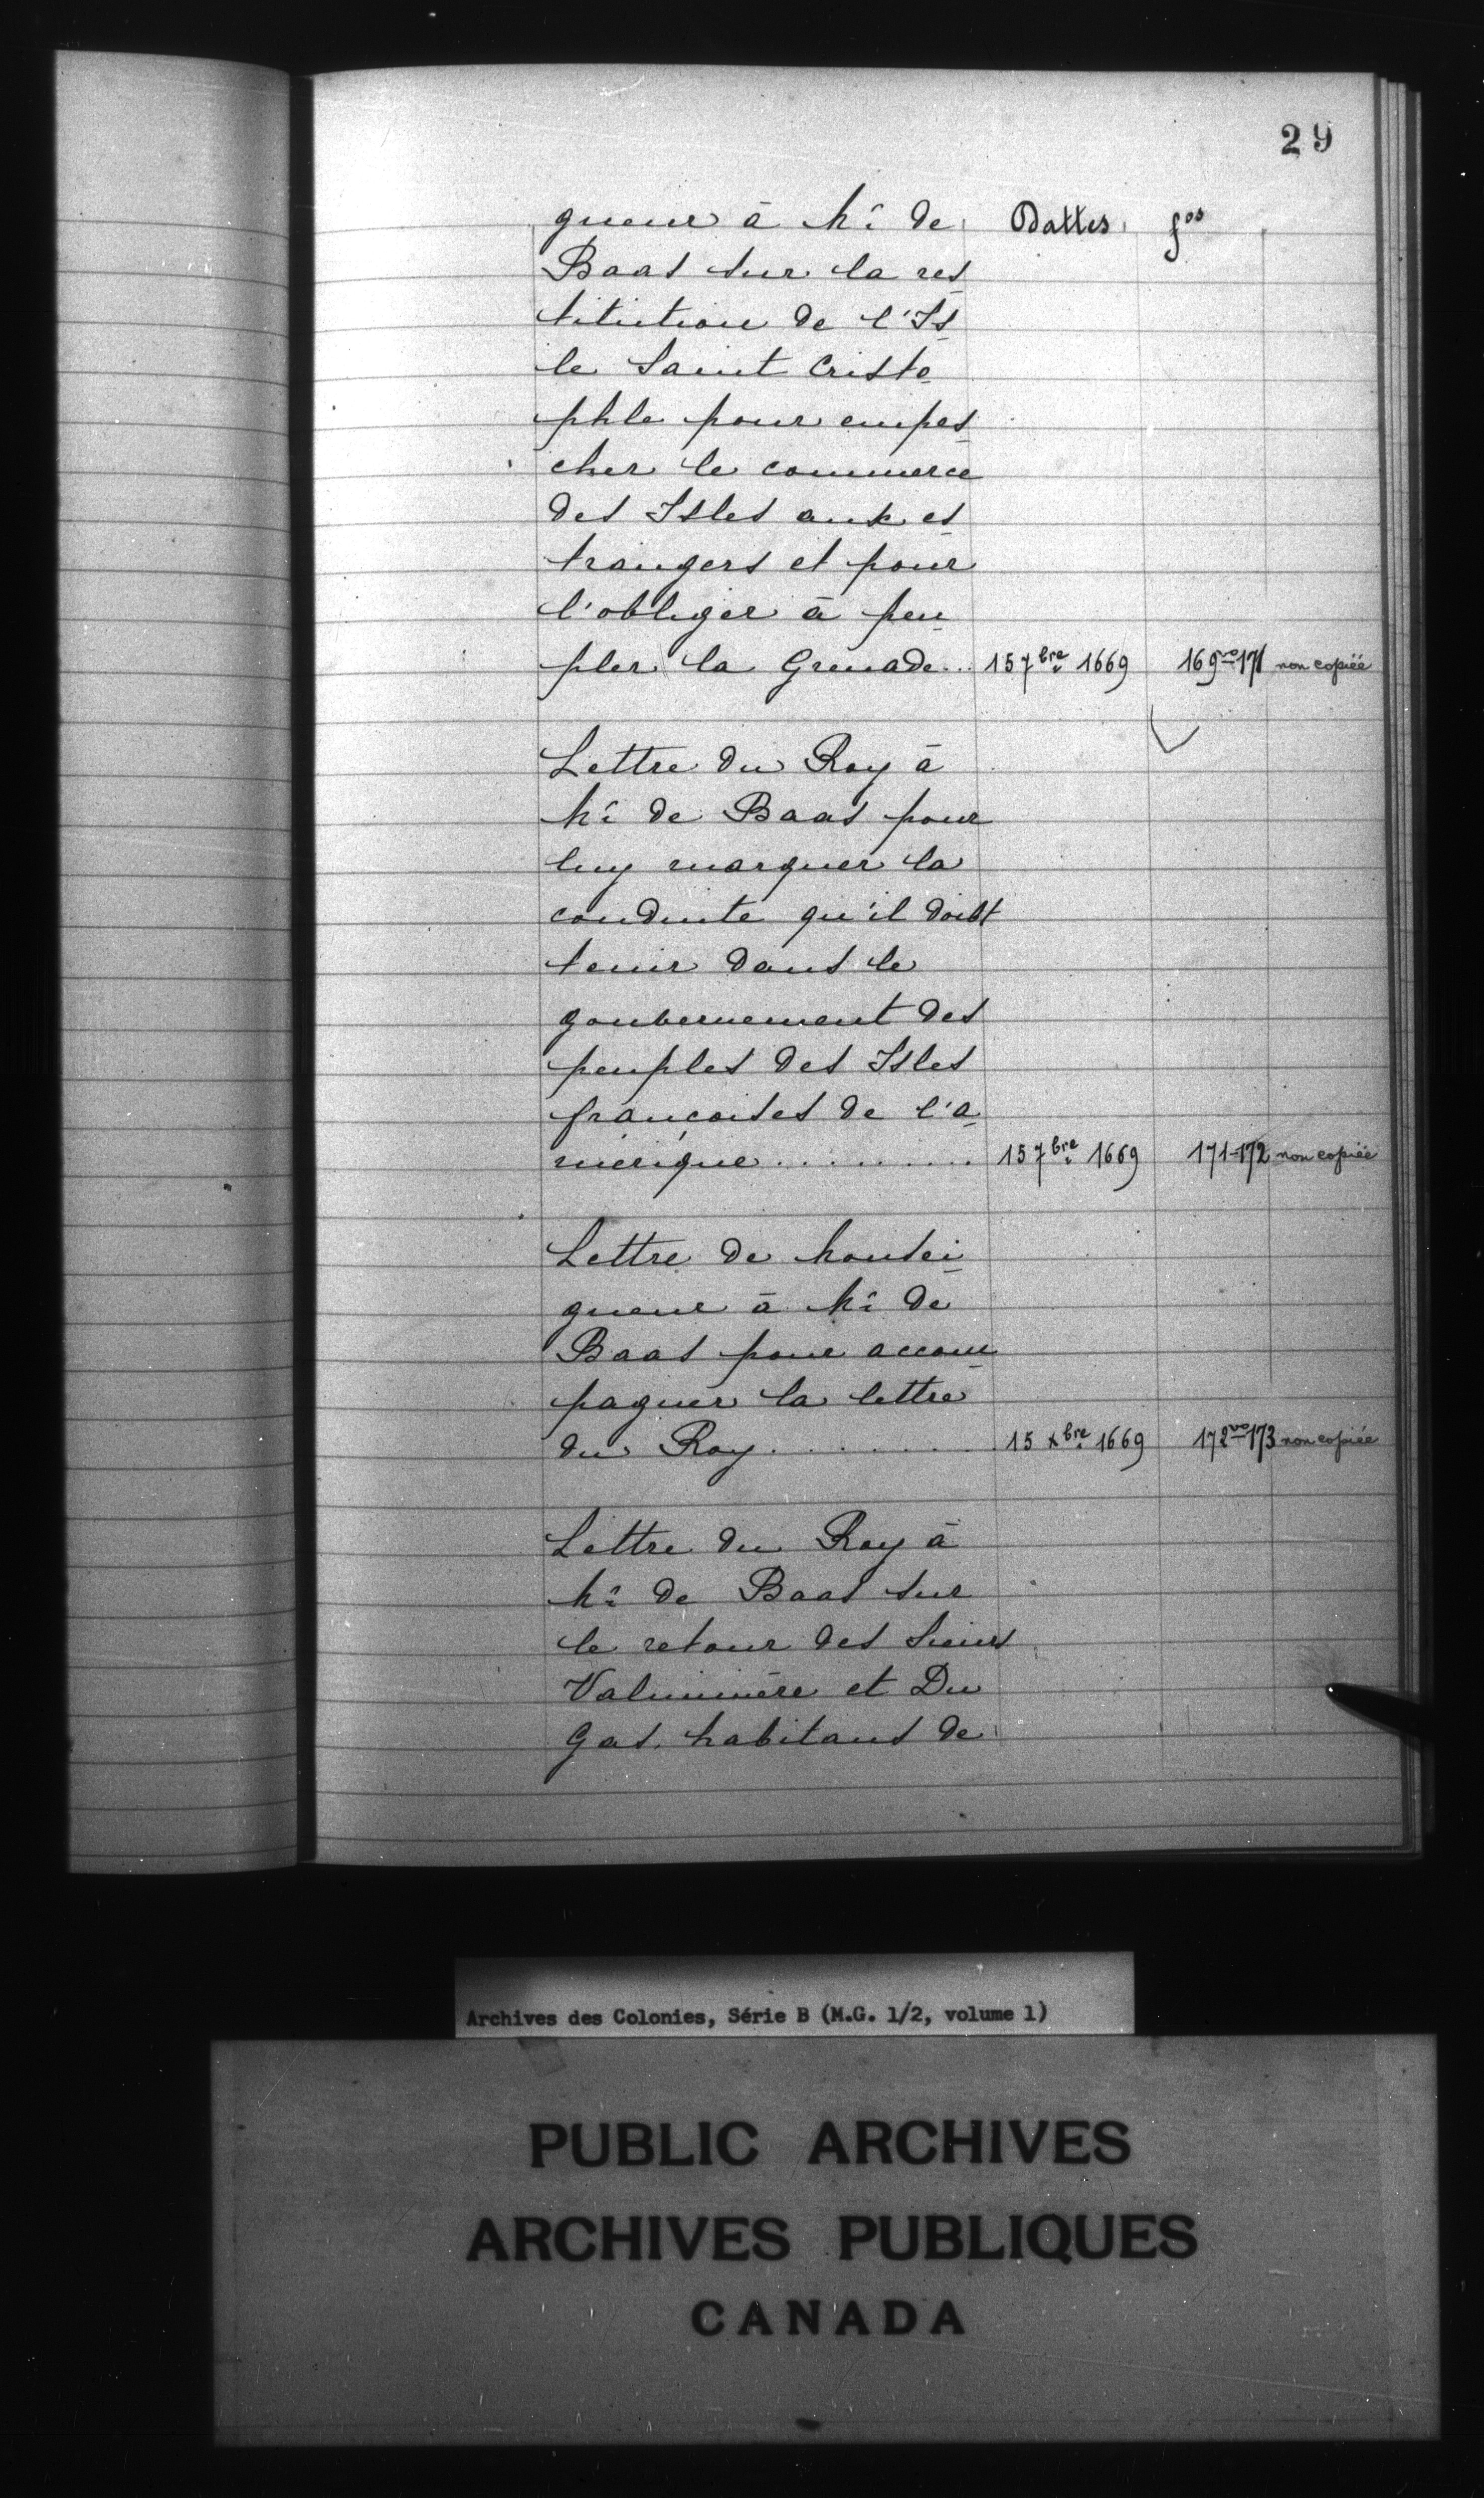 29
gneur à Mr de Dattes fos
Baas sur la res
titution de l'Is
le Saint Cristo
phle pour empes
cher le commerce
des Isles aux es
trangers et pour
l'obliger à peu
pler la Grenade... 15 7bre 1669 169vo-171 non copiée
Lettre du Roy à
Mr de Baas pour
luy marquer la
conduite qu'il doibt
tenir dans le
gouvernement des
peuples des Isles
françoises de l'a
mérique.......... 15 7bre 1669 171-172 non copiée
Lettre de Monsei
gneur à Mr de
Baas pour accom
pagner la lettre
du Roy.......... 15 xbre 1669 172vo-173 non copiée
Lettre du Roy à
Mr de Baas sur
le retour des Sieurs
Valminière et Du
Gas. habitans de
Archives des Colonies, Série B (M.G. 1/2, volume 1)
PUBLIC ARCHIVES
ARCHIVES PUBLIQUES
CANADA